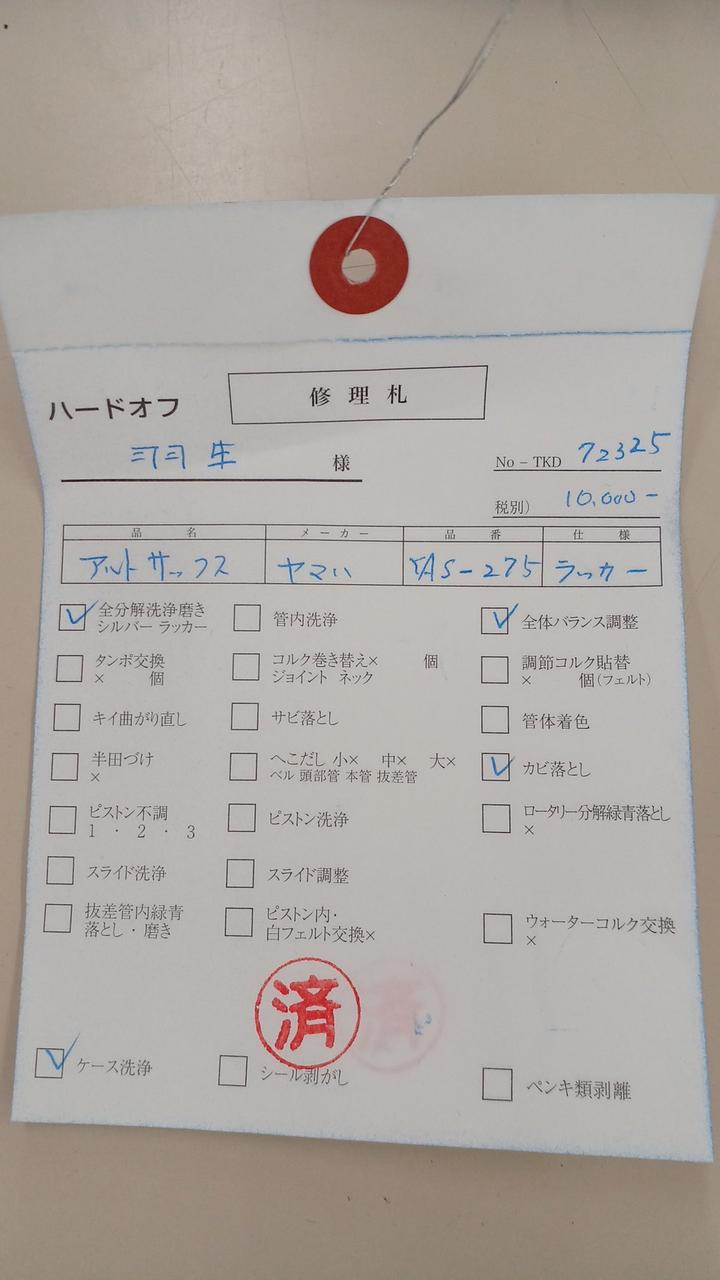 ハードオフ
修理札
羽生 様
No－TKD 72325
税別) 10,000－
品名 メーカー 品番 仕様
アルトサックス ヤマハ YAS-275 ラッカー
全分解洗浄磨き
シルバー ラッカー
管内洗浄
全体バランス調整
タンポ交換
× 個
コルク巻き替え× 個
ジョイント ネック
調節コルク貼替
× 個(フェルト)
キイ曲がり直し
サビ落とし
管体着色
半田づけ
×
へこだし 小× 中× 大×
ベル 頭部管 本管 抜差管
カビ落とし
ピストン不調
1 ・ 2 ・ 3
ピストン洗浄
ロータリー分解緑青落とし
×
スライド洗浄
スライド調整
抜差管内緑青
落とし・磨き
ピストン内・
白フェルト交換×
ウォーターコルク交換
×
済
ケース洗浄
シール剥がし
ペンキ類剥離